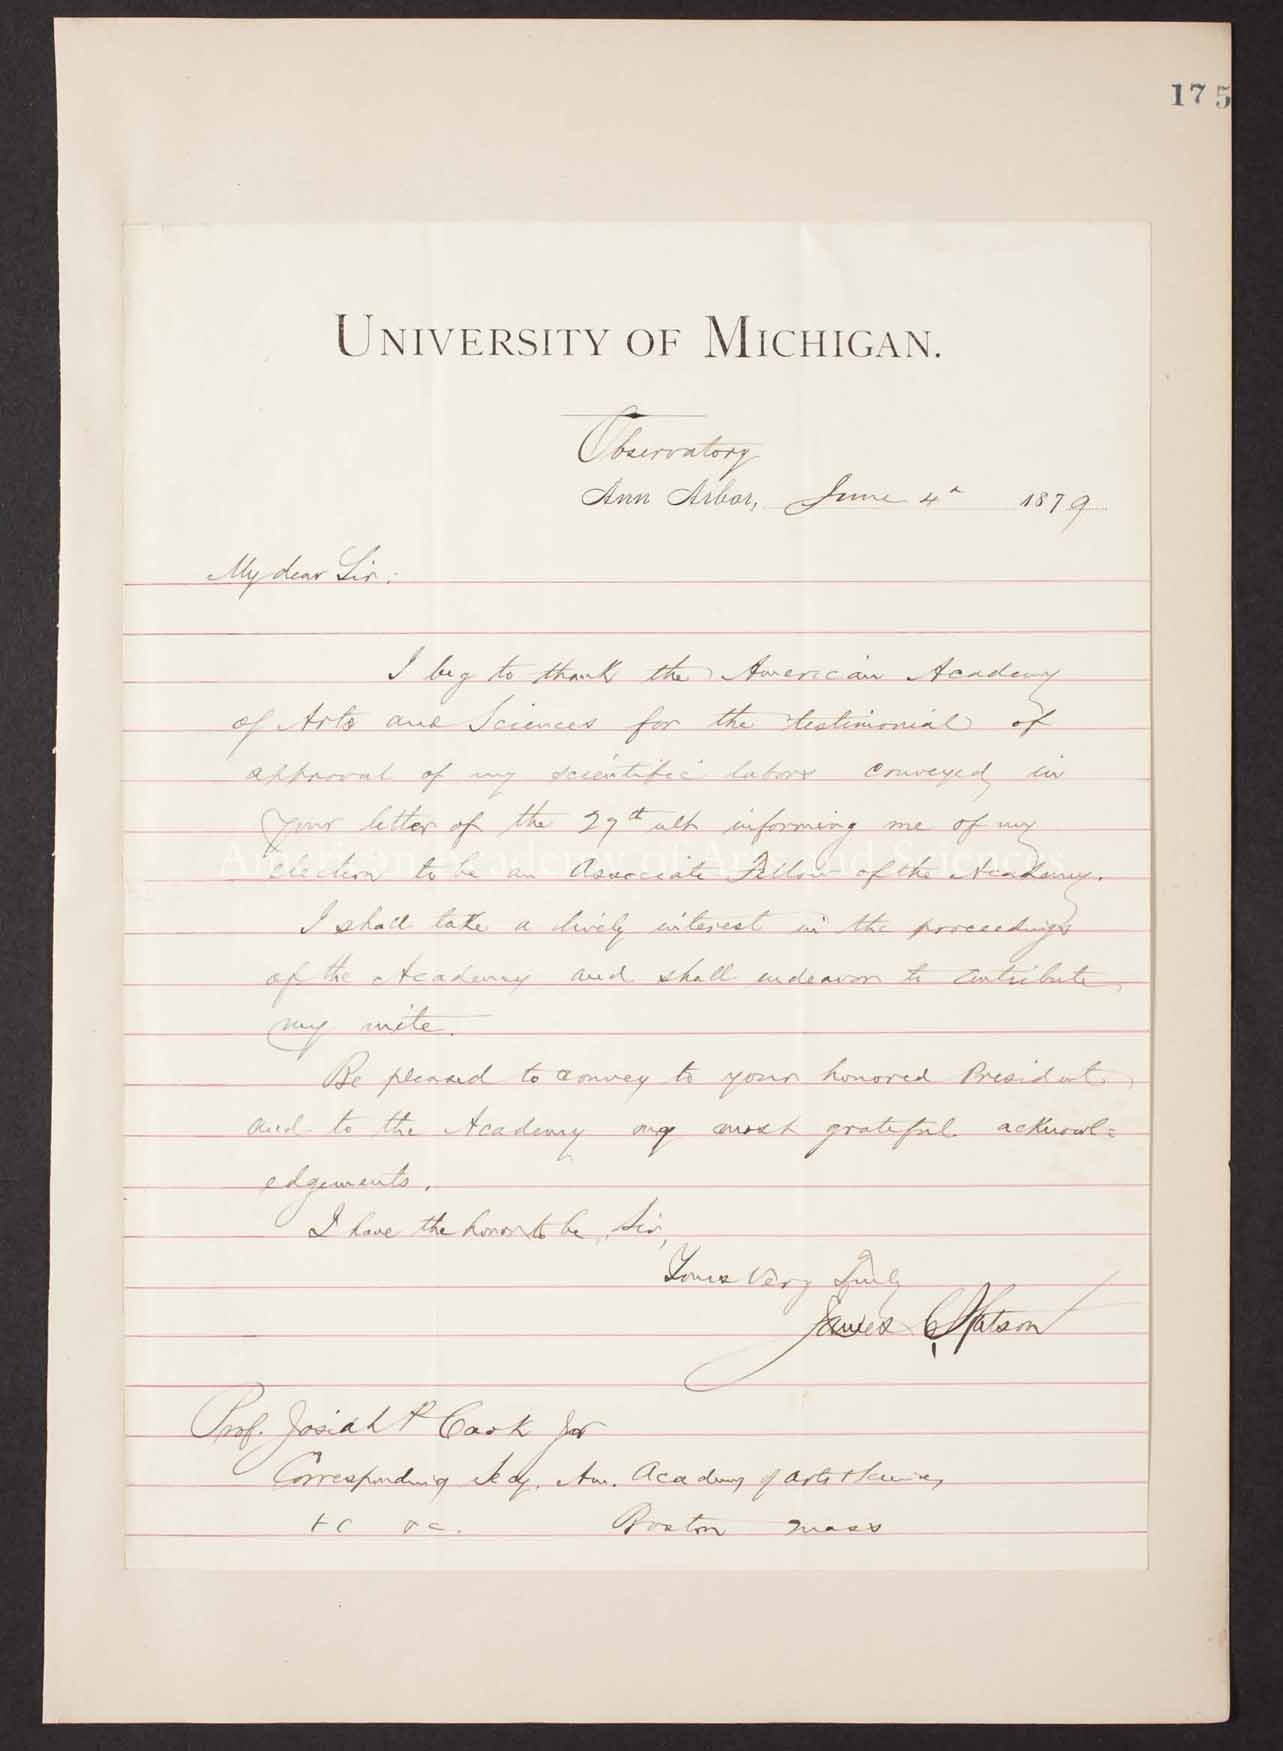 175
UNIVERSITY OF MICHIGAN.
Observatory
Ann Arbor, June 4th 1879
My dear Sir:
I beg to thank the American Academy
of Arts and Sciences for the testimonial of
approval of my scientific labors conveyed in
your letter of the 29th ult informing me of my
election to be an Associate Fellow of the Academy.
I shall take a lively interest in the proceedings
of the Academy and shall endeavor to contribute
my mite.
Be pleased to convey to your honored President
and to the Academy my most grateful acknowl=
edgements.
I have the honor to be, Sir,
Yours Very Truly
James C Watson
Prof. Josiah P Cook Jor
Corresponding Secy. Am. Academy of Arts & Sciences
&c &c. Boston Mass
American Academy of Arts and Sciences